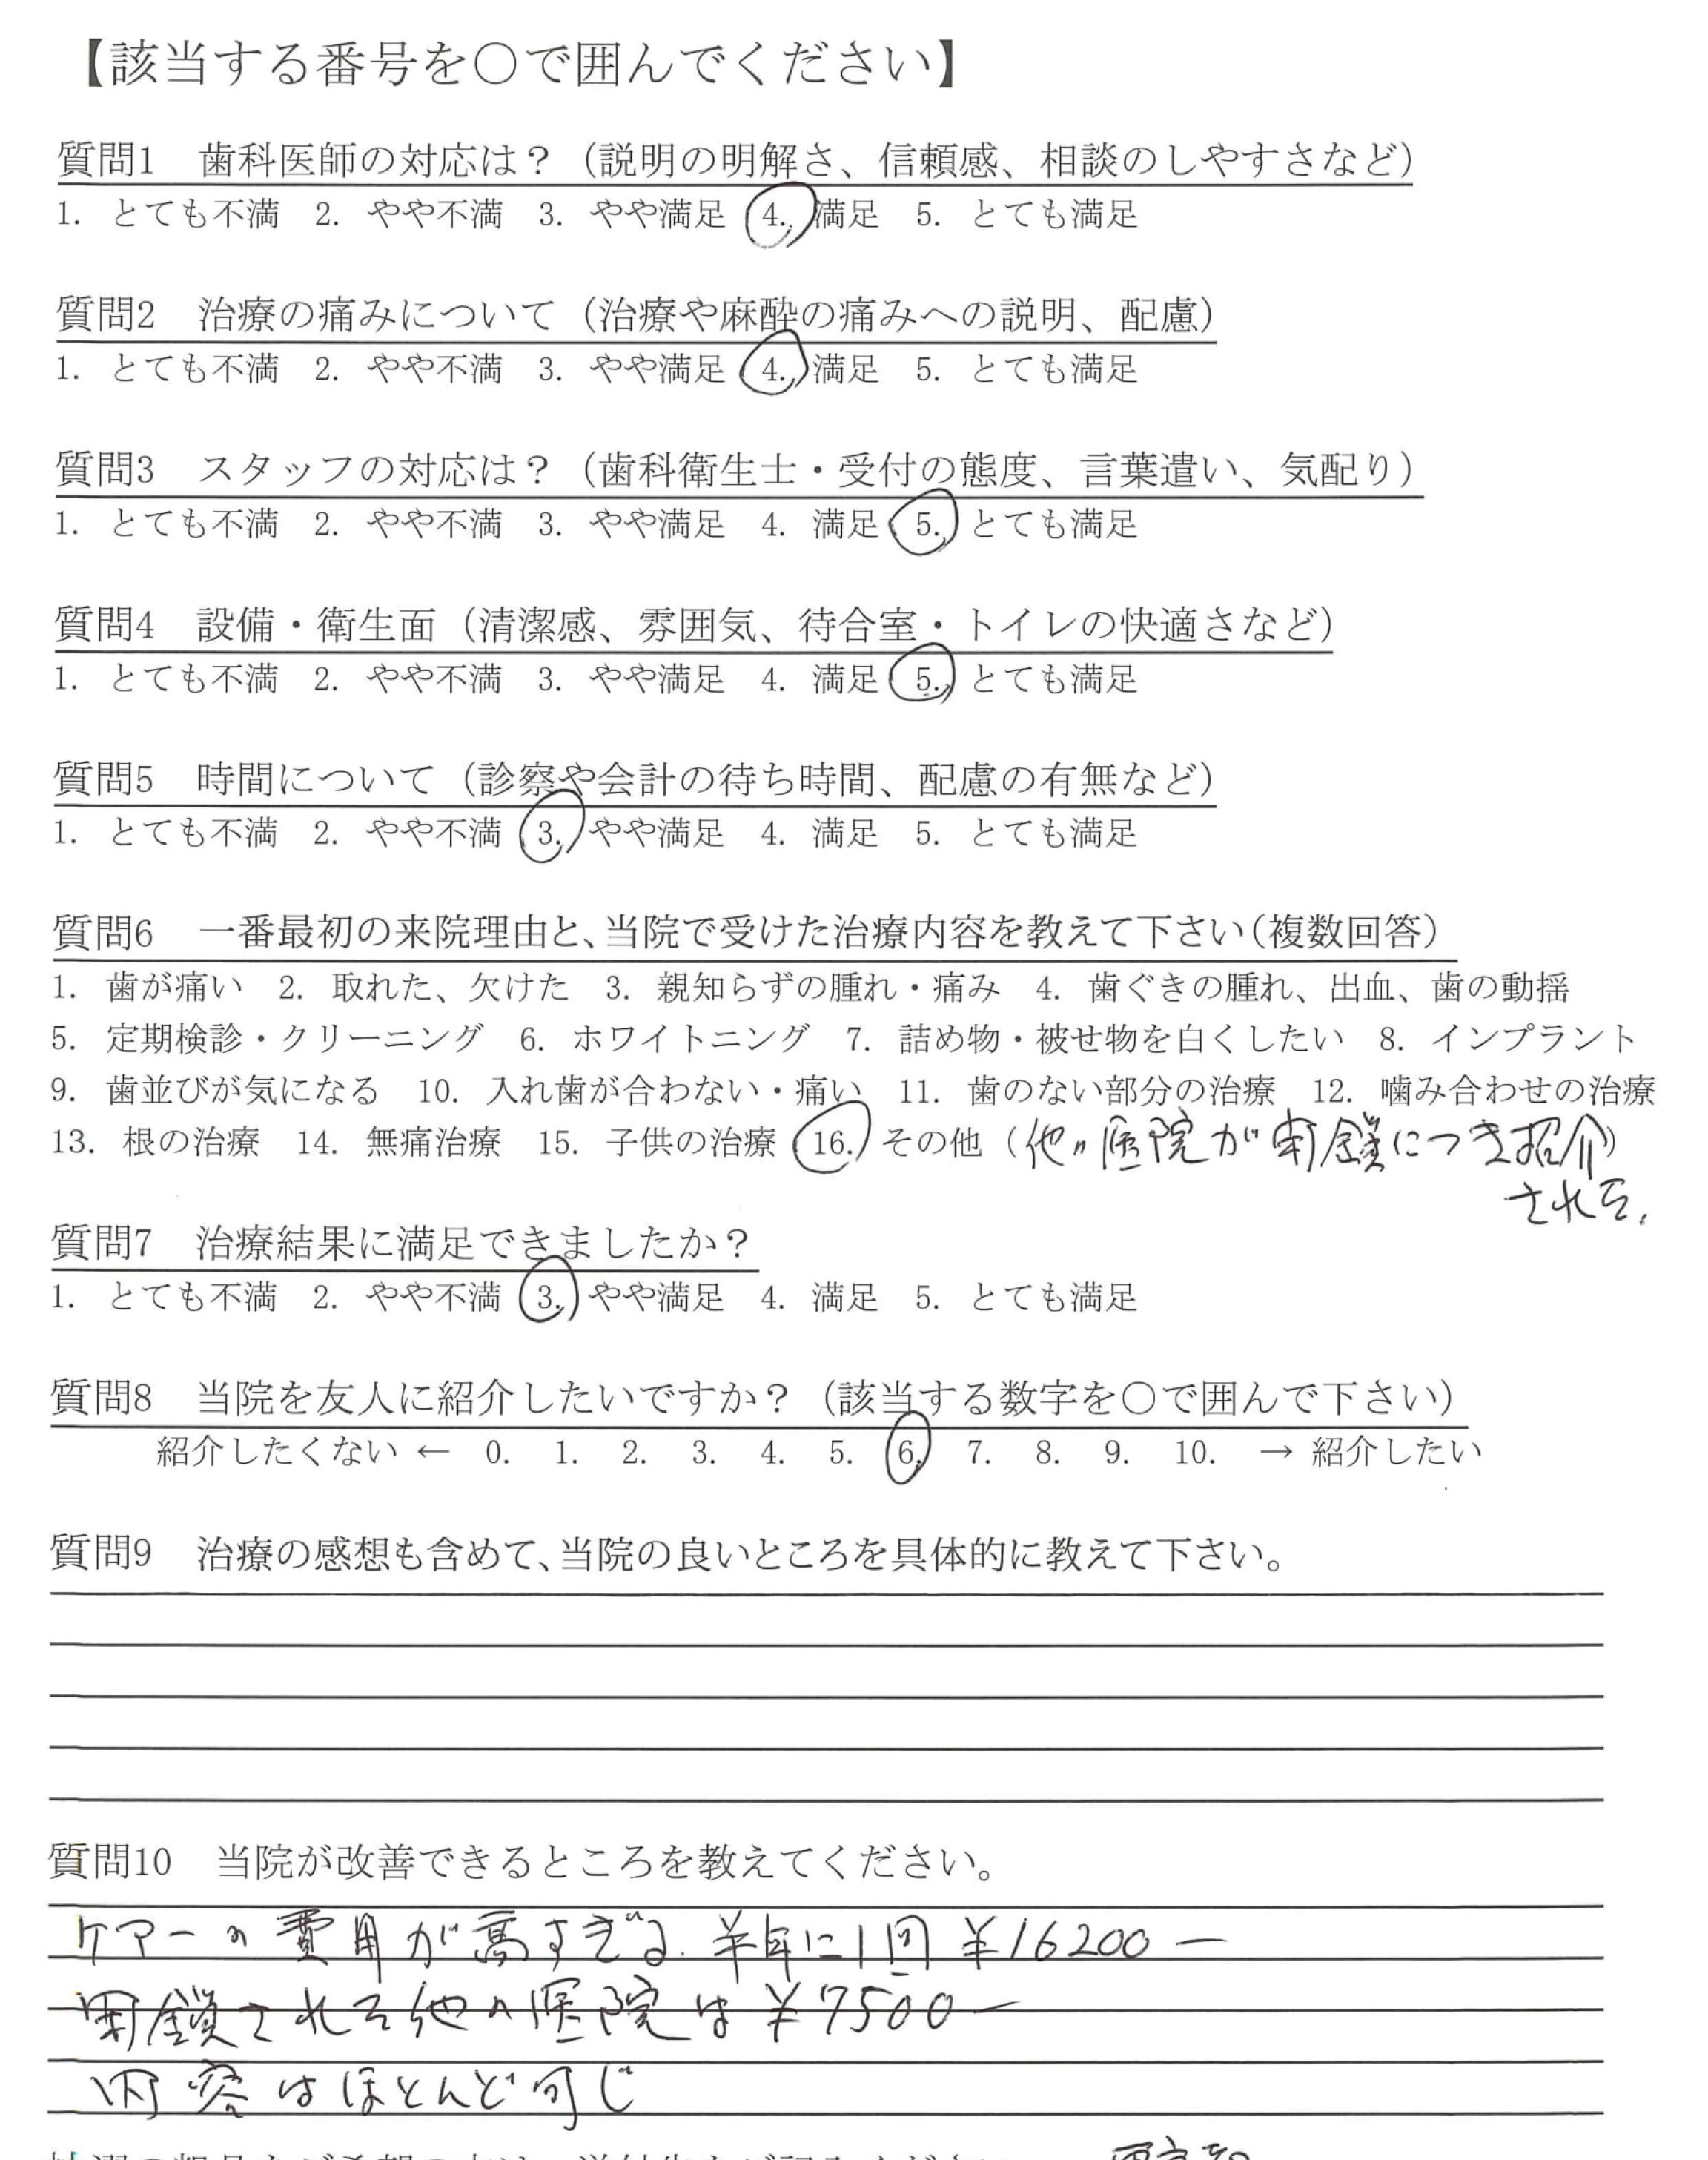 【該当する番号を○で囲んでください】
質問1　歯科医師の対応は？（説明の明解さ、信頼感、相談のしやすさなど）
1. とても不満　2. やや不満　3. やや満足　4. 満足　5. とても満足
質問2　治療の痛みについて（治療や麻酔の痛みへの説明、配慮）
1. とても不満　2. やや不満　3. やや満足　4. 満足　5. とても満足
質問3　スタッフの対応は？（歯科衛生士・受付の態度、言葉遣い、気配り）
1. とても不満　2. やや不満　3. やや満足　4. 満足　5. とても満足
質問4　設備・衛生面（清潔感、雰囲気、待合室・トイレの快適さなど）
1. とても不満　2. やや不満　3. やや満足　4. 満足　5. とても満足
質問5　時間について（診察や会計の待ち時間、配慮の有無など）
1. とても不満　2. やや不満　3. やや満足　4. 満足　5. とても満足
質問6　一番最初の来院理由と、当院で受けた治療内容を教えて下さい（複数回答）
1. 歯が痛い　2. 取れた、欠けた　3. 親知らずの腫れ・痛み　4. 歯ぐきの腫れ、出血、歯の動揺
5. 定期検診・クリーニング　6. ホワイトニング　7. 詰め物・被せ物を白くしたい　8. インプラント
9. 歯並びが気になる　10. 入れ歯が合わない・痛い　11. 歯のない部分の治療　12. 噛み合わせの治療
13. 根の治療　14. 無痛治療　15. 子供の治療　16. その他（他の医院が閉鎖につき紹介）
された.
質問7　治療結果に満足できましたか？
1. とても不満　2. やや不満　3. やや満足　4. 満足　5. とても満足
質問8　当院を友人に紹介したいですか？（該当する数字を○で囲んで下さい）
紹介したくない ← 0.　1.　2.　3.　4.　5.　6.　7.　8.　9.　10.　→ 紹介したい
質問9　治療の感想も含めて、当院の良いところを具体的に教えて下さい。
質問10　当院が改善できるところを教えてください。
ケアーの費用が高すぎる. 半年に1回 ¥16200 —
閉鎖された他の医院は ¥7500 —
内容はほとんど同じ